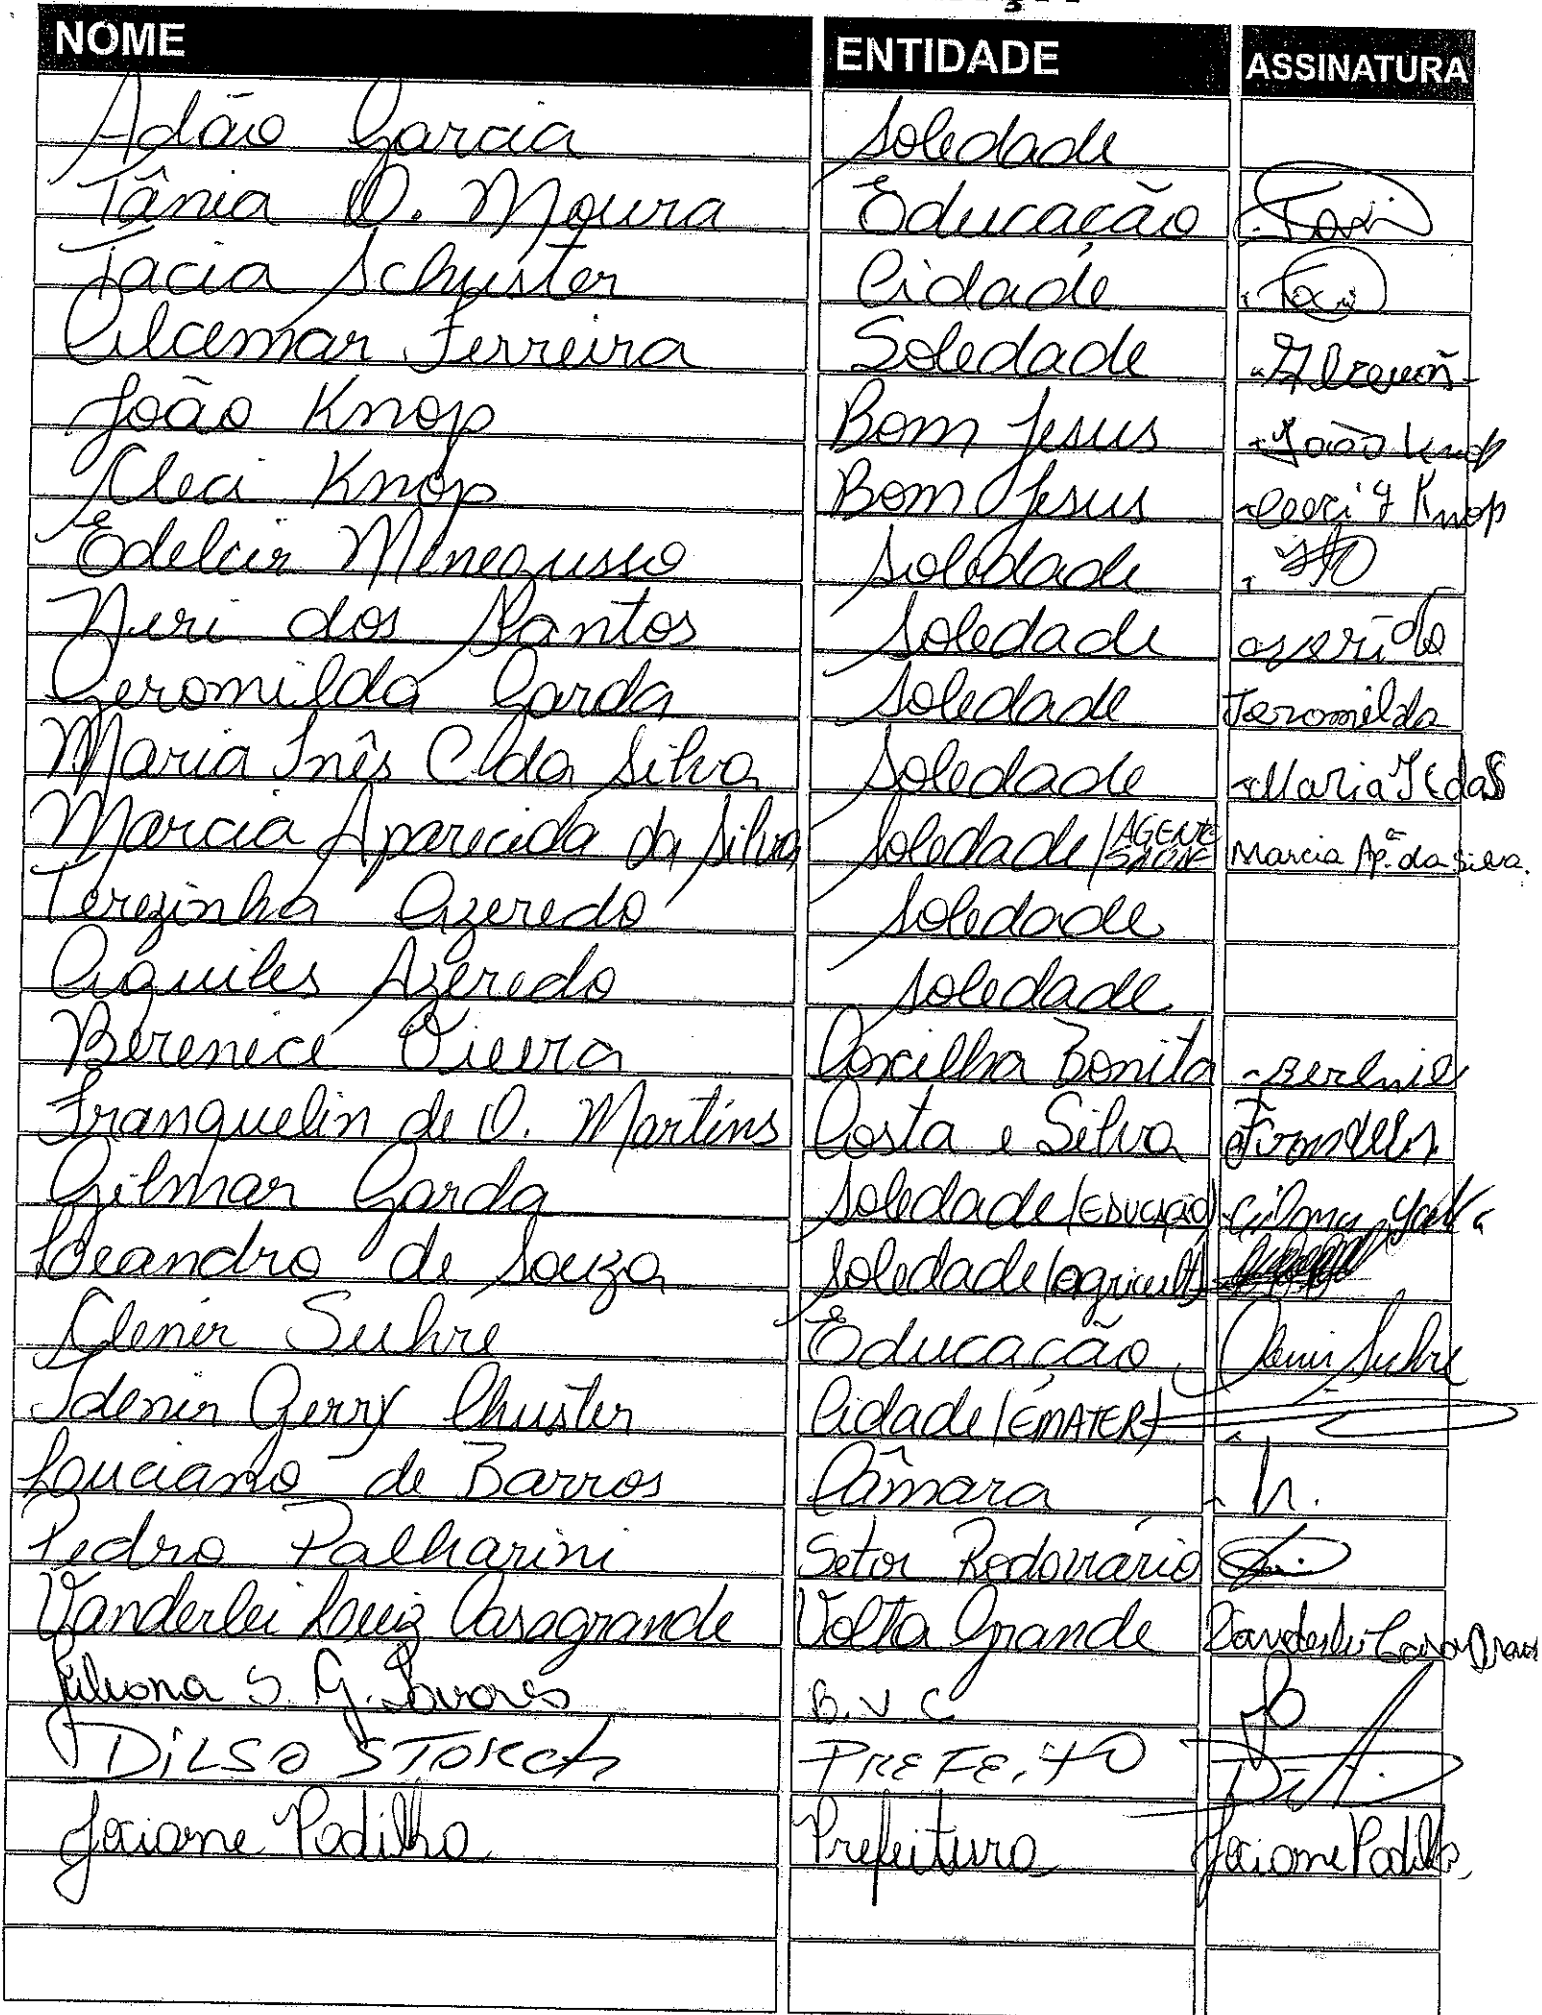 NOME ENTIDADE ASSINATURA
Adão Garcia Soledade
Tânia O. Moura Educação
Tacia Schuster Cidade
Cilcemar Ferreira Soledade
João Knop Bom Jesus João Knop
Cleci Knop Bom Jesus Knop
Edelcir Menegusso Soledade
Neri dos Santos Soledade
Geromilda Garda Soledade Jeromilda
Maria Inês C. da Silva Soledade Maria
Marcia Aparecida da Silva Soledade/AGENTE SAÚDE Marcia Apª. da Silva.
Terezinha Azeredo Soledade
Aquiles Azeredo Soledade
Berenice Vieira Coxilha Bonita
Franquelin de O. Martins Costa e Silva
Gilmar Garda Soledade/(EDUCAÇÃO)
Leandro de Souza Soledade/(agricult)
Clenir Suhre Educação Clenir Suhre
Idenir Gerry Chuster Cidade/(EMATER)
Luciano de Barros Câmara
Pedro Palharini Setor Rodoviário
Vanderlei Luiz Casagrande Volta Grande
Juliana S. G. Tavares B.V.C
DiLSO STORCH PREFEiTO
Jociane Padilha Prefeitura Jociane Padilha